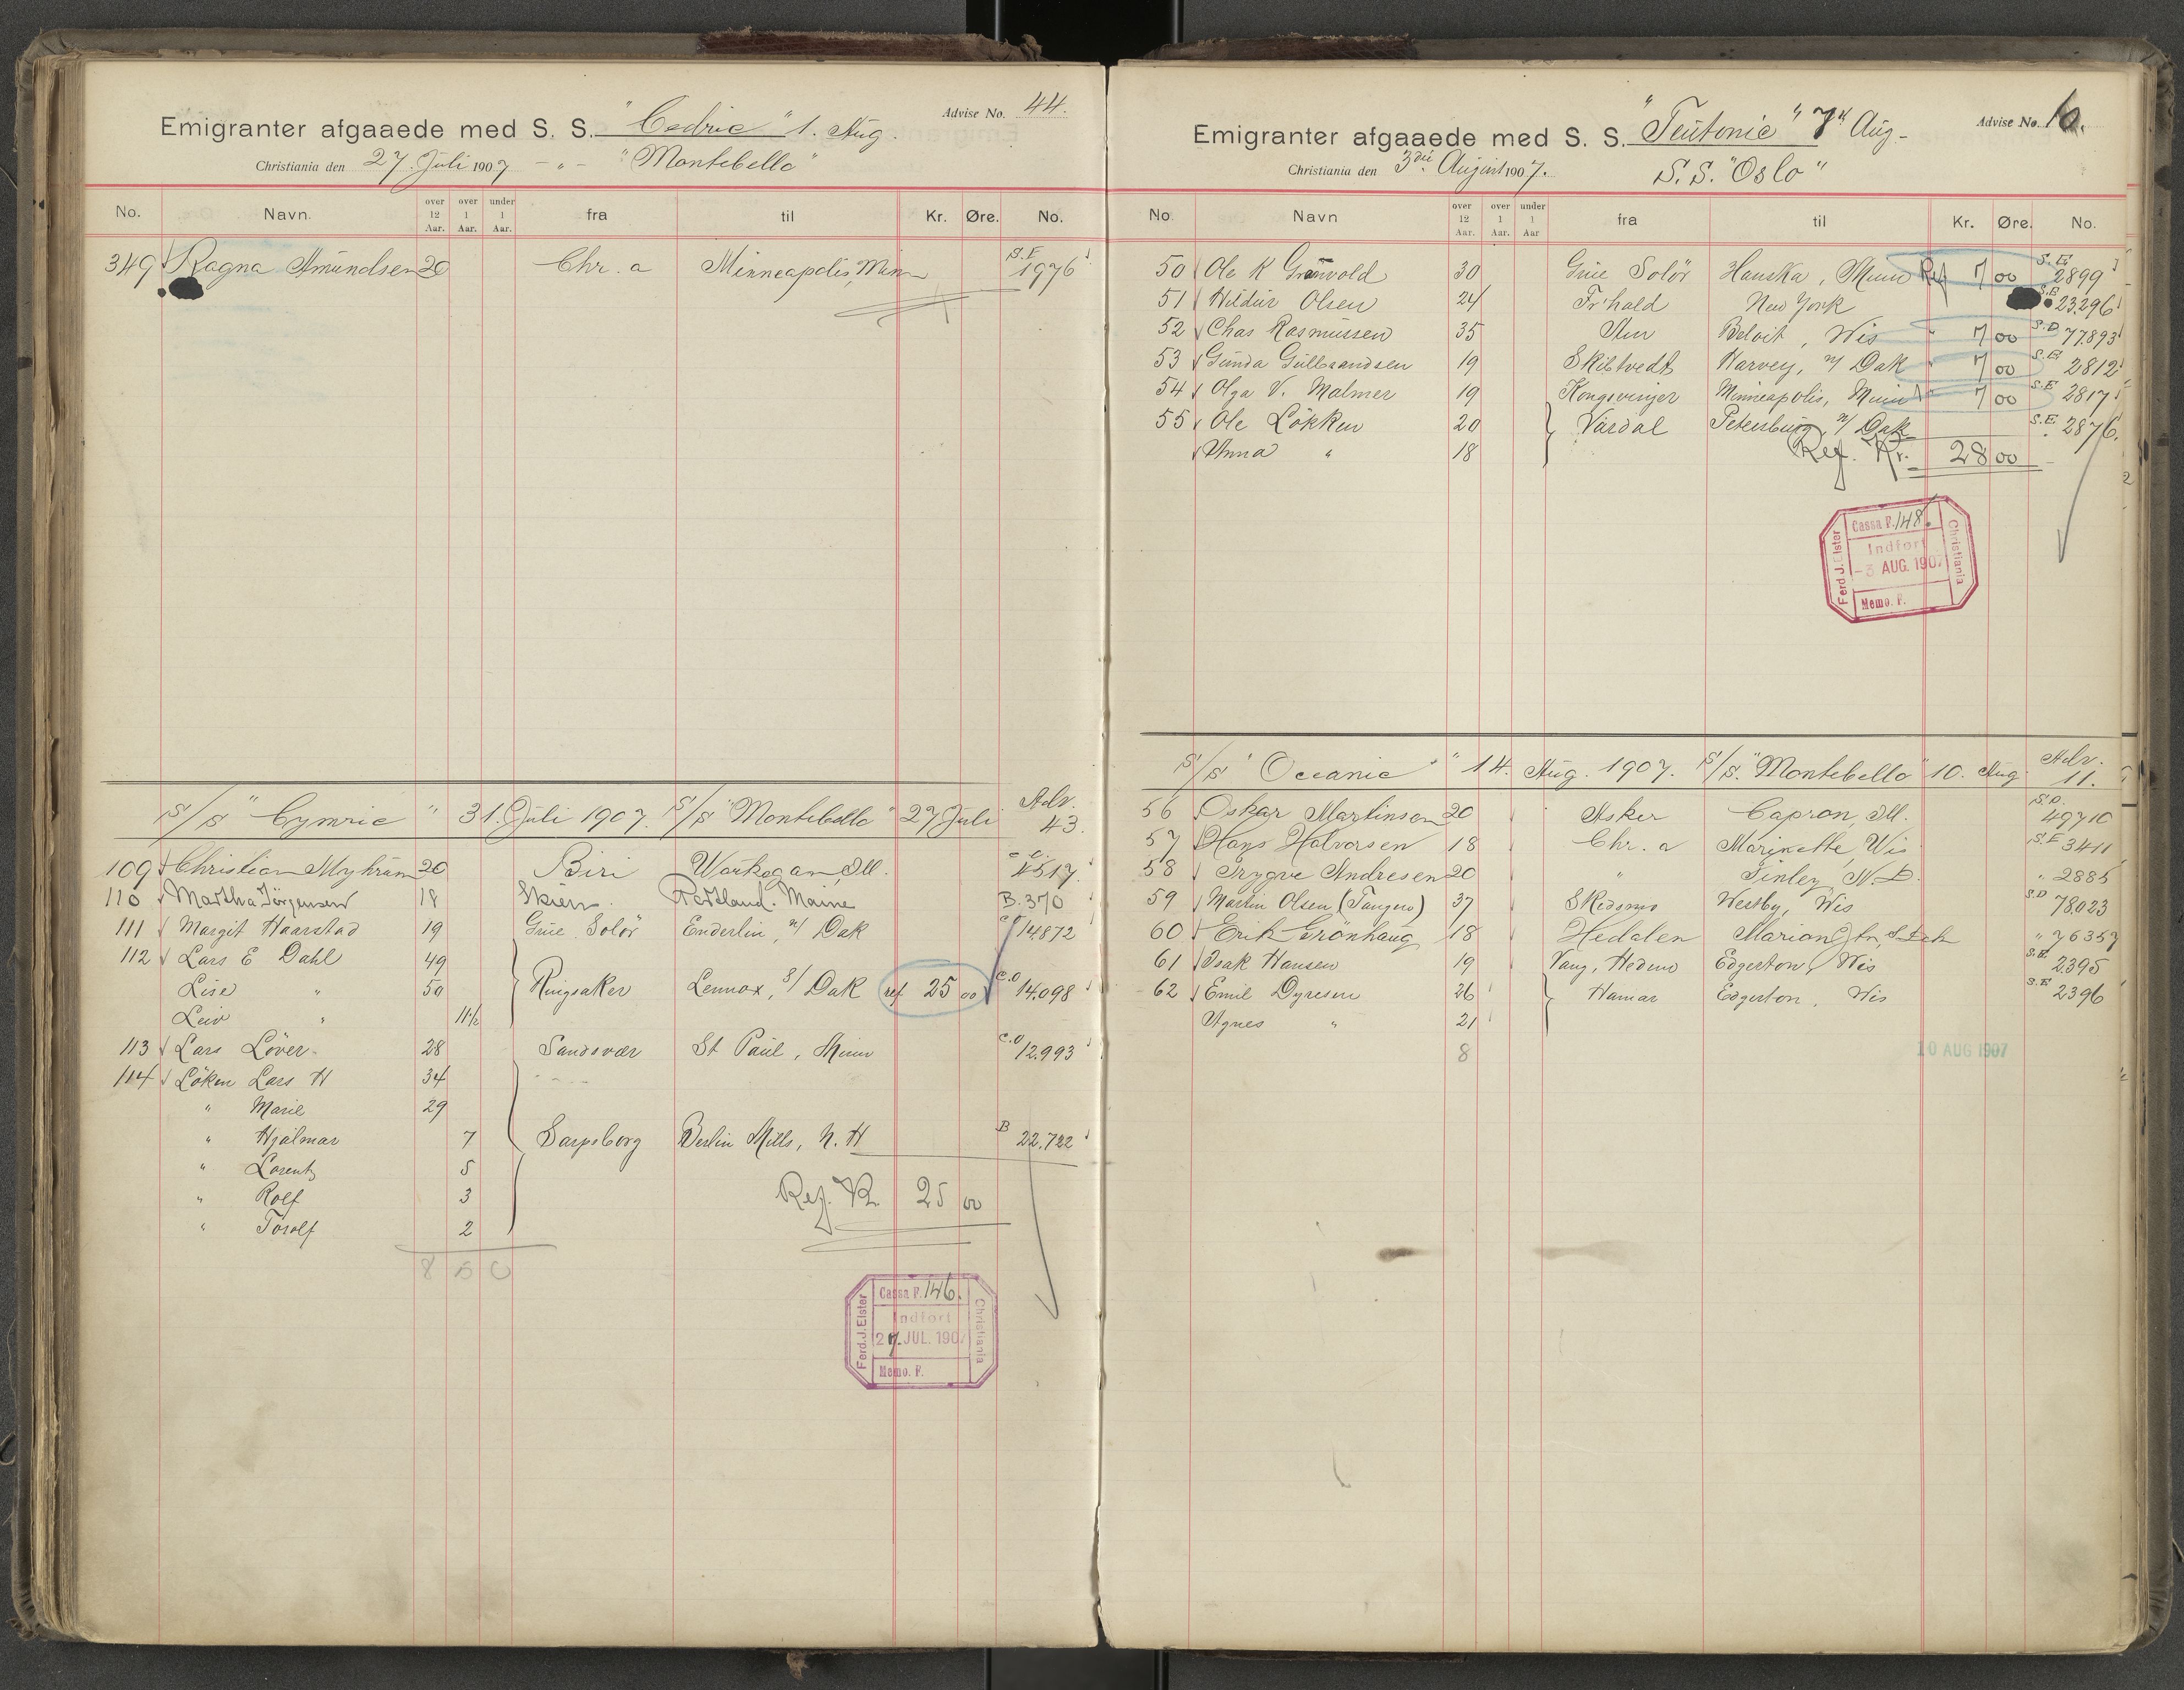 Emigranter afgaaede med S. S. "Cedric" 1. Aug. Advise No. 44.
Christiania den 27. Juli 1907 - " - "Montebello"
No. Navn. over 12 Aar. over 1 Aar. under 1 Aar. fra til Kr. Øre. No.
349 Ragna Amundsen 20 Chr. a Minneapolis, Minn S.E 1976
S/S "Cymric" 31. Juli 1907. S/S "Montebello" 27 Juli Adv. 43.
109 Christian Myhrum 20 Biri Waukegan, Ill.
110 Martha Jörgensen 18 Skien. Portland. Maine B. 370
111 Margit Haarstad 19 Grue Solör Enderlin, n/ Dak 14.872
112 Lars E Dahl 49
Lise " 50 Ringsaker Lennox, S/ Dak ref 25 00 C.O 14.098
Leiv " 11½
113 Lars Löver 28 Sandsvær St Paul, Minn C.O 12.993
114 Löken Lars H 34
" Marie 29
" Hjalmar 7 Sarpsborg Berlin Mills, N. H B 22.722
" Lorentz 5
" Rolf 3 Ref. Kr. 25 00
" Torolf 2
8 5 0
Ferd. J. Elster Christiania
Cassa P. 146.
Indført
27. JUL. 1907
Memo. P.
Emigranter afgaaede med S. S. "Teutonic" 7d Aug- Advise No. 10.
Christiania den 3die August 1907. S.S. "Oslo"
No. Navn over 12 Aar. over 1 Aar. under 1 Aar fra til Kr. Øre. No.
50 Ole K Grønvold 30 Grue Solör Hanska, Minn Ref 7 00 S.E. 2899
51 Hildur Olsen 24 Fr'hald New York S.E 23.296
52 Chas Rasmussen 35 Beloit, Wis " 7 00 S.D 77.893
53 Gunda Gulbrandsen 19 Skibtvedt Harvey, n/ Dak " 7 00 S.E 2812
54 Olga V. Malmer 19 Kongsvinger Minneapolis, Minn " 7 00 S.E 2817
55 Ole Lökken 20 Vardal Petersburg, n/ Dak S.E. 2876.
Anna " 18 Ref. Kr. 28 00
Ferd J. Elster Christiania
Cassa P. 148.
Indført
-3 AUG. 1907
Memo. P.
S/S "Oceanic" 14. Aug. 1907. S/S. "Montebello" 10. Aug Adv. 11.
56 Oskar Martinsen 20 Asker Capron, Ill. S.D. 49710
57 Hans Halvorsen 18 Chr. a Marinette, Wis S.E 3411
58 Trygve Andresen 20 " Finley, N. D. " 2885
59 Martin Olsen (Tangen) 37 Skedsmo Westby, Wis S.D 78.023
60 Erik Grönhaug 18 Hedalen Marion Jtn, S. Dak " 76357
61 Isak Hansen 19 Vang, Hedem Edgerton, Wis S.E. 2395
62 Emil Dyresen 26 Hamar Edgerton, Wis S.E 2396
Agnes " 21
8
10 AUG 1907